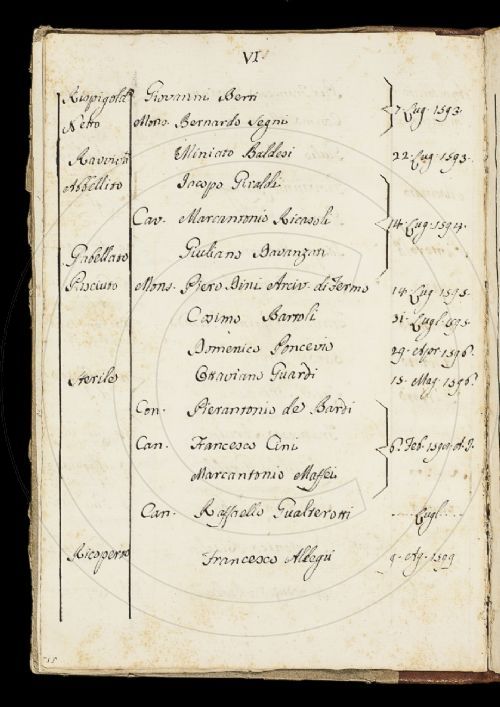 VI.
Rispigolato Giovanni Berti
Netto Mons. Bernardo Segni 7. Lug. 1593.
Ravvivato Miniato Baldesi 22. Lug. 1593.
Abbellito Jacopo Giraldi
Cav. Marcantonio Ricasoli 14. Lug. 1594.
Gabellato Giuliano Davanzati
Pasciuto Mons. Piero Dini Arciv. di Fermo 14. Lug. 1595.
Cosimo Bartoli 31. Lugl. 1595.
Domenico Poncevio 29. Apr. 1596.
Sterile Ottaviano Guardi 15. Mag. 1596.
Con. Pierantonio de Bardi
Can. Francesco Cini 6. Feb. 1590
Marcantonio Maffei
Can. Raffaello Gualterotti ... Lugl. ...
Ricoperto Francesco Allegri 9. Ag. 1599